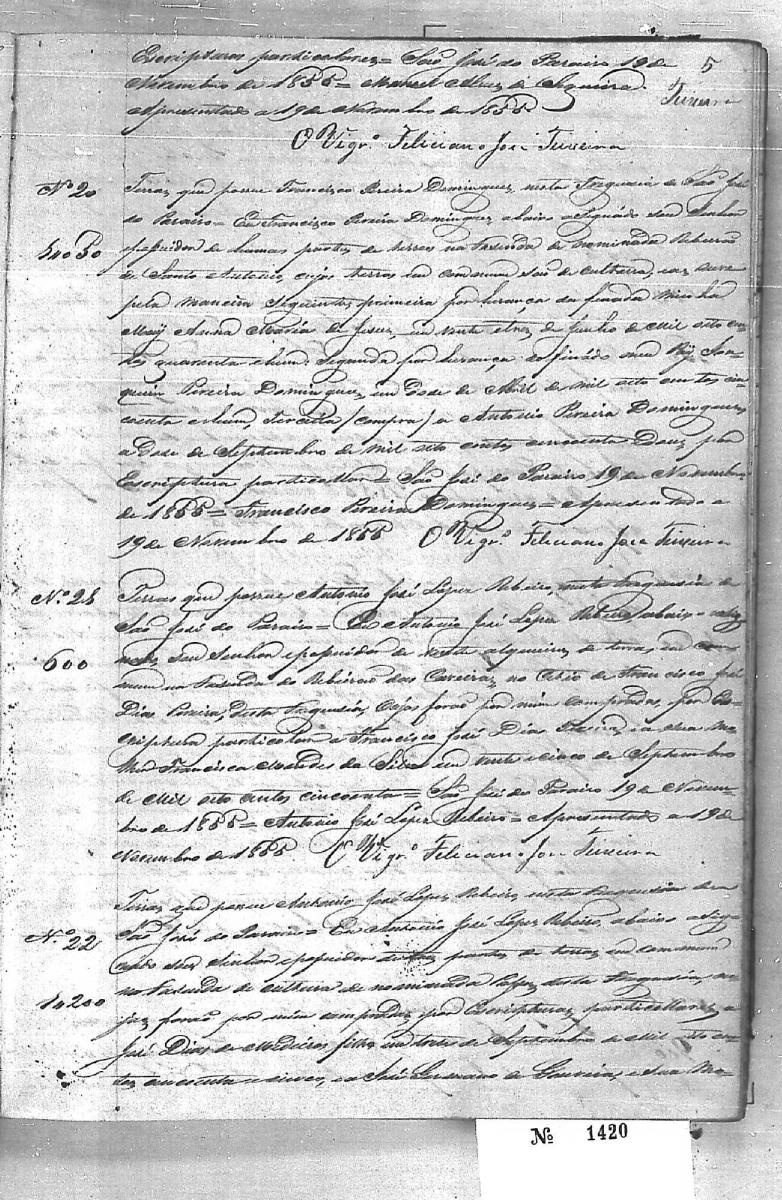 Escripturas particolares = São José do Paraiso 19 de
Novembro de 1855 = Manoel Alvz de Siqueira.
Apresentado a 19 de Novembro de 1855.
5
Teixeira
O Vigrº Feliciano José Teixeira
Nº 20
Terras que possue Francisco Pereira Domingues, nesta Freguesia de São José
do Paraiso = Eu Francisco Pereira Domingues abaixo asignado sou Senhor
epossuidor de humas partes de terras na fazenda de nominada Ribeirão
de Santo Antonio, cujas terras em commum são de cultura,
pela maneira seguinte, primeira por herança da finada minha
May Anna Maria de Jesus, em vinte etres de Junho de Mil oito cen-
tos quarenta ehum. Segunda por herança do finado meu Pay Joa-
quim Pereira Domingues, em doze de Abril de mil oito centos cin-
coenta ehum, Terceira (compra) a Antonio Pereira Domingues
a doze de Septembro de mil oito centos cincoenta edous, por
Escriptura particollar = São José do Paraiso 19 de Novembro
de 1855 = Francisco Pereira Domingues = Apresentado a
19 de Novembro de 1855 O Vigrº Feliciano José Teixeira
Nº 21
600
Terras que possue Antonio José Lopes Ribeiro, nesta Freguesia de
São José do Paraiso = Eu Antonio José Lopes Ribeiro abaixo asig-
nado, sou Senhor epossuidor de alqueires de terras em com-
mum na fazenda do Ribeirão das no Citio de Francisco José
Dias Pereira, desta Freguesia, Cujas forão por mim compradas, por Es-
criptura particolar a Francisco José Dias Pereira, e a sua Mo-
lher Francisca Mendes da Silva em vinte e cinco de Septembro
de Mil oito centos cincoenta = São José do Paraiso 19 de Novem-
bro de 1855 = Antonio José Lopes Ribeiro = Apresentado a 19 de
Novembro de 1855 O Vigrº Feliciano José Teixeira
Nº 22
Terras que possue Antonio José Lopes Ribeiro, nesta Freguesia de
São José do Paraiso = Eu Antonio José Lopes Ribeiro, abaixo asig-
nado sou Senhor epossuidor de partes de terras em commum
na fazenda de cultura de nominada desta Freguesia, cu-
jas forão por mim compradas, por Escripturas particollares, a
José Dias de Medeiros filho, em de Septembro de Mil oito cen-
tos cincoenta e cinco, e a José de Gouveira, e sua Mo-
Nº 1420